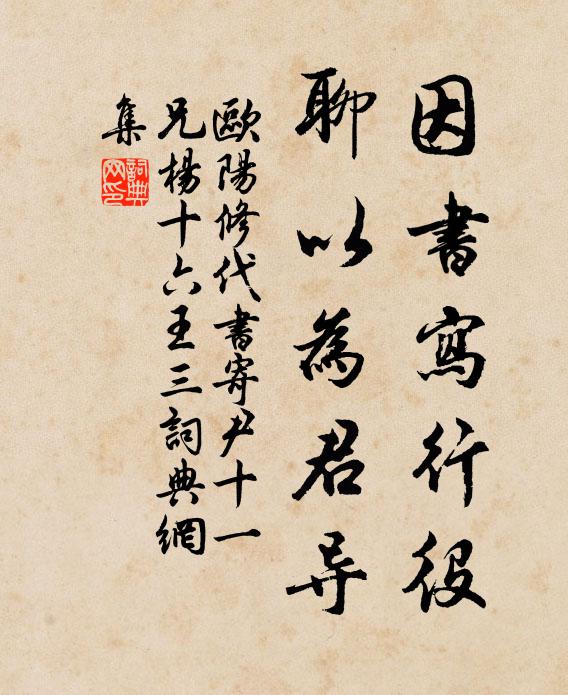 因書寫行役
聊以為君导
歐陽修代書寄尹十一
兄楊十六王三詞典網
集
詞典
网印